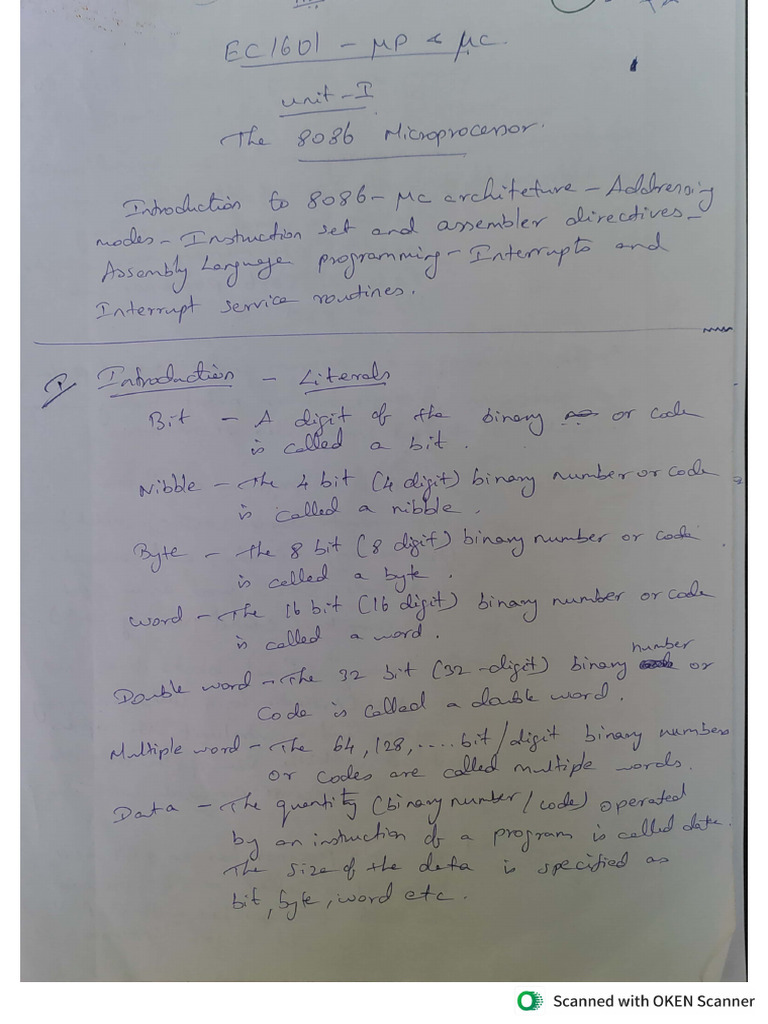 EC1601 - μP & μC.
Unit - I
The 8086 Microprocessor.
Introduction to 8086 - μC architeture - Addressing
modes - Instruction set and assembler directives -
Assembly Language programming - Interrupts and
Interrupt service routines.
I. Introduction - Literals
Bit - A digit of the binary or code
is called a bit.
Nibble - The 4 bit (4 digit) binary number or code
is called a nibble.
Byte - The 8 bit (8 digit) binary number or code
is called a byte.
Word - The 16 bit (16 digit) binary number or code
is called a word.
number
Double word - The 32 bit (32-digit) binary or
code is called a double word.
Multiple word - The 64, 128, ..... bit/digit binary numbers
or codes are called multiple words.
Data - The quantity (binary number/code) operated
by an instruction of a program is called data.
The size of the data is specified as
bit, byte, word etc.
Scanned with OKEN Scanner